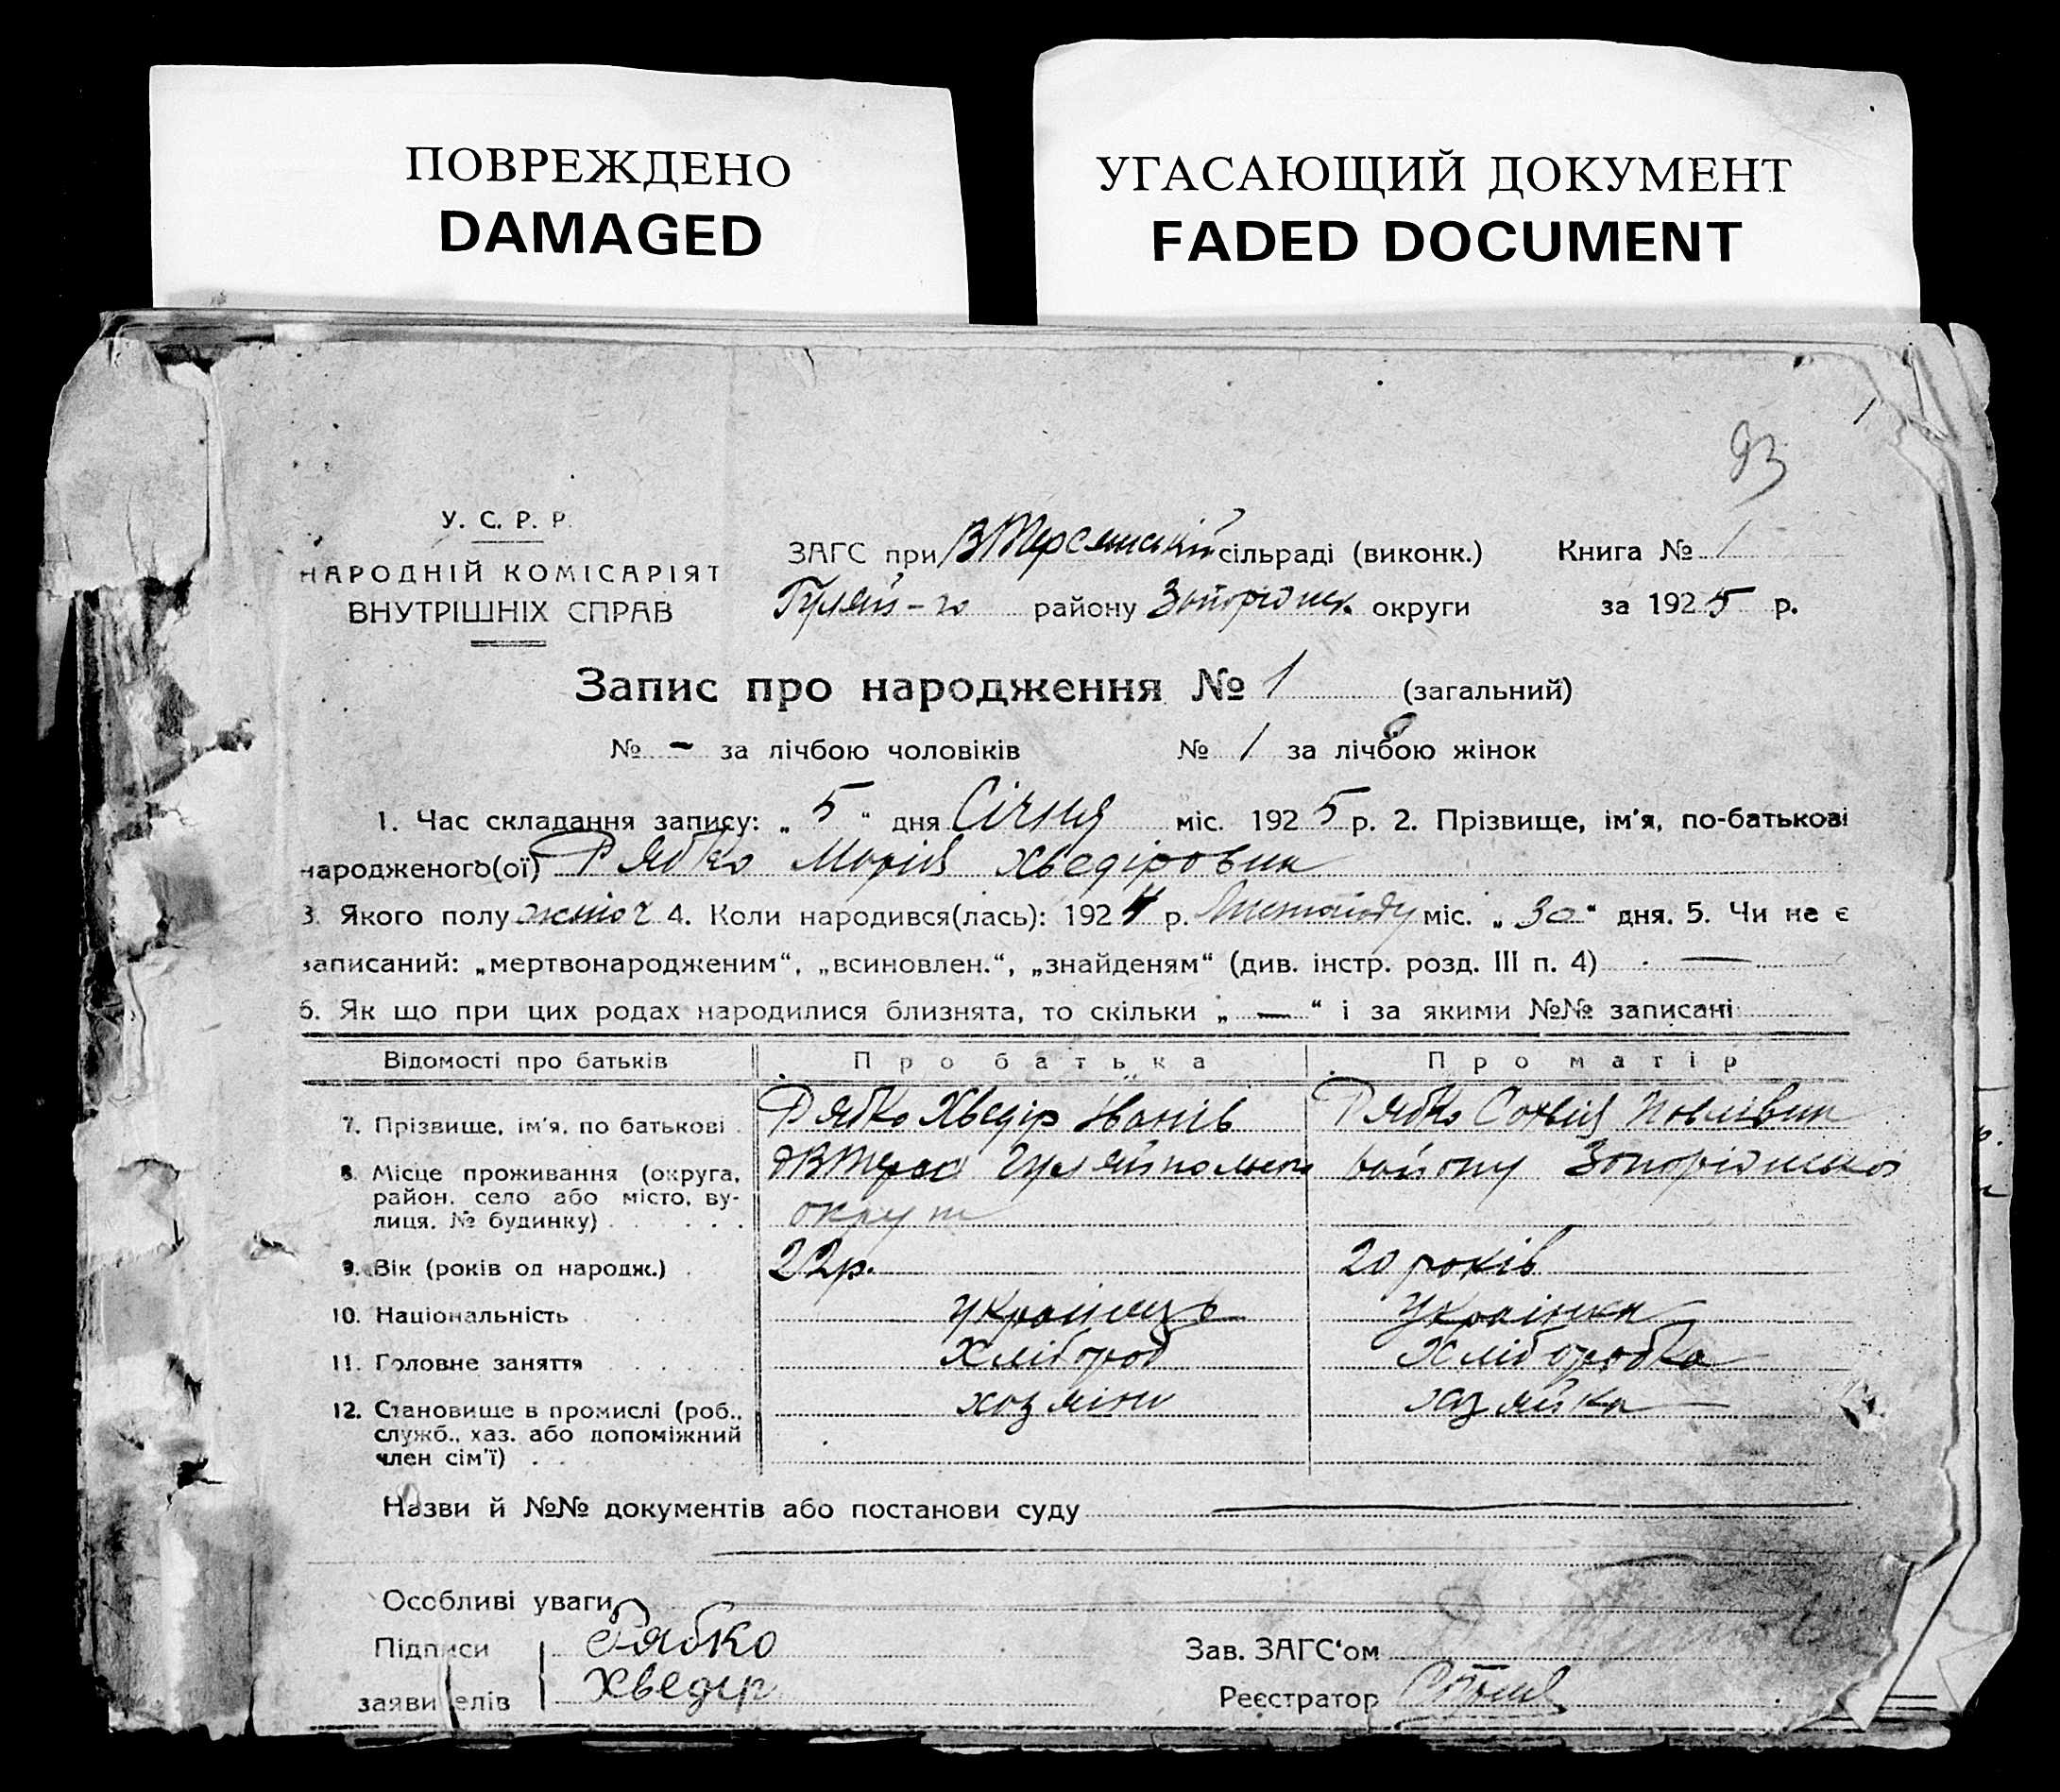 ПОВРЕЖДЕНО
DAMAGED
УГАСАЮЩИЙ ДОКУМЕНТ
FADED DOCUMENT
93
У. С. Р. Р.
НАРОДНІЙ КОМІСАРІЯТ
ВНУТРІШНІХ СПРАВ
ЗАГС при ВТерсянській сільраді (виконк.) Книга № 1
Гуляй-го району Запоріжск. округи за 1925 р.
Запис про народження № 1 (загальний)
№ - за лічбою чоловіків № 1 за лічбою жінок
1. Час складання запису: „ 5 “ дня Січня міс. 1925 р. 2. Прізвище, ім'я, по-батькові
народженого(ої) Рябко Марія Хведіровна
3. Якого полу жіноч 4. Коли народився(лась): 1924 р. Листопаду міс. „ 30 “ дня. 5. Чи не є
записаний: „мертвонародженим“, „всиновлен.“, „знайденям“ (див. інстр. розд. III п. 4) —
6. Як що при цих родах народилися близнята, то скільки „ — “ і за якими №№ записані
Відомості про батьків Про батька Про матір
7. Прізвище, ім'я, по батькові Рябко Хведір Іванів Рябко Софія Павлівна
8. Місце проживання (округа, район, село або місто, вулиця, № будинку) Гуляйпольск району Запоріжської
округи
9. Вік (років од народж.) 22р. 20 років
10. Національність Українець Українка
11. Головне заняття Хлібороб Хліборобка
12. Становище в промислі (роб., служб., хаз. або допоміжний член сім'ї) хозяїн хазяйка
Назви й №№ документів або постанови суду
Особливі уваги
Підписи Рябко Зав. ЗАГС'ом
заявителів Хведір Реєстратор